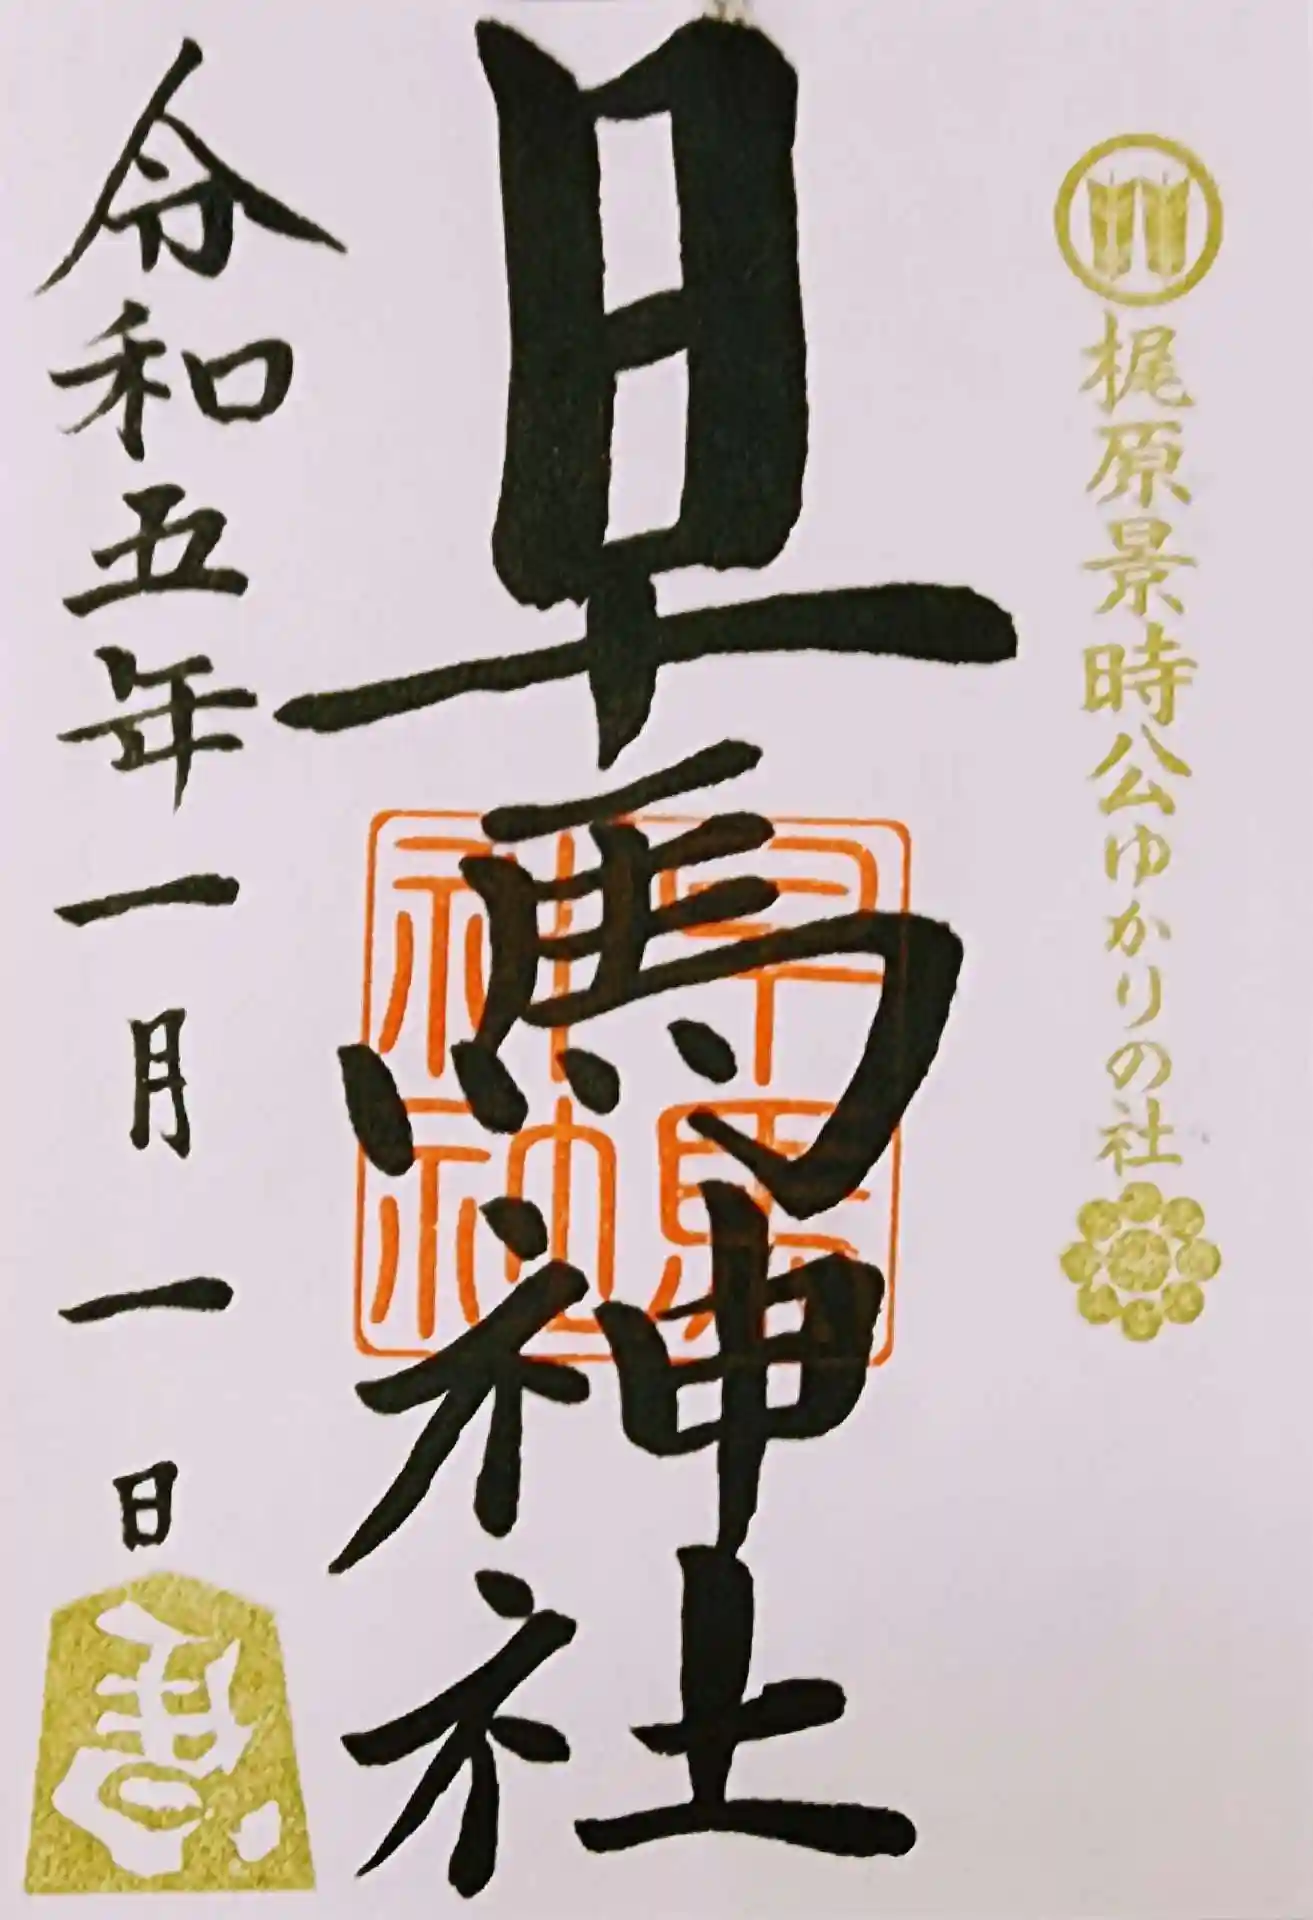 梶原景時公ゆかりの社
早馬神社
早馬
神社
令和五年一月一日
馬